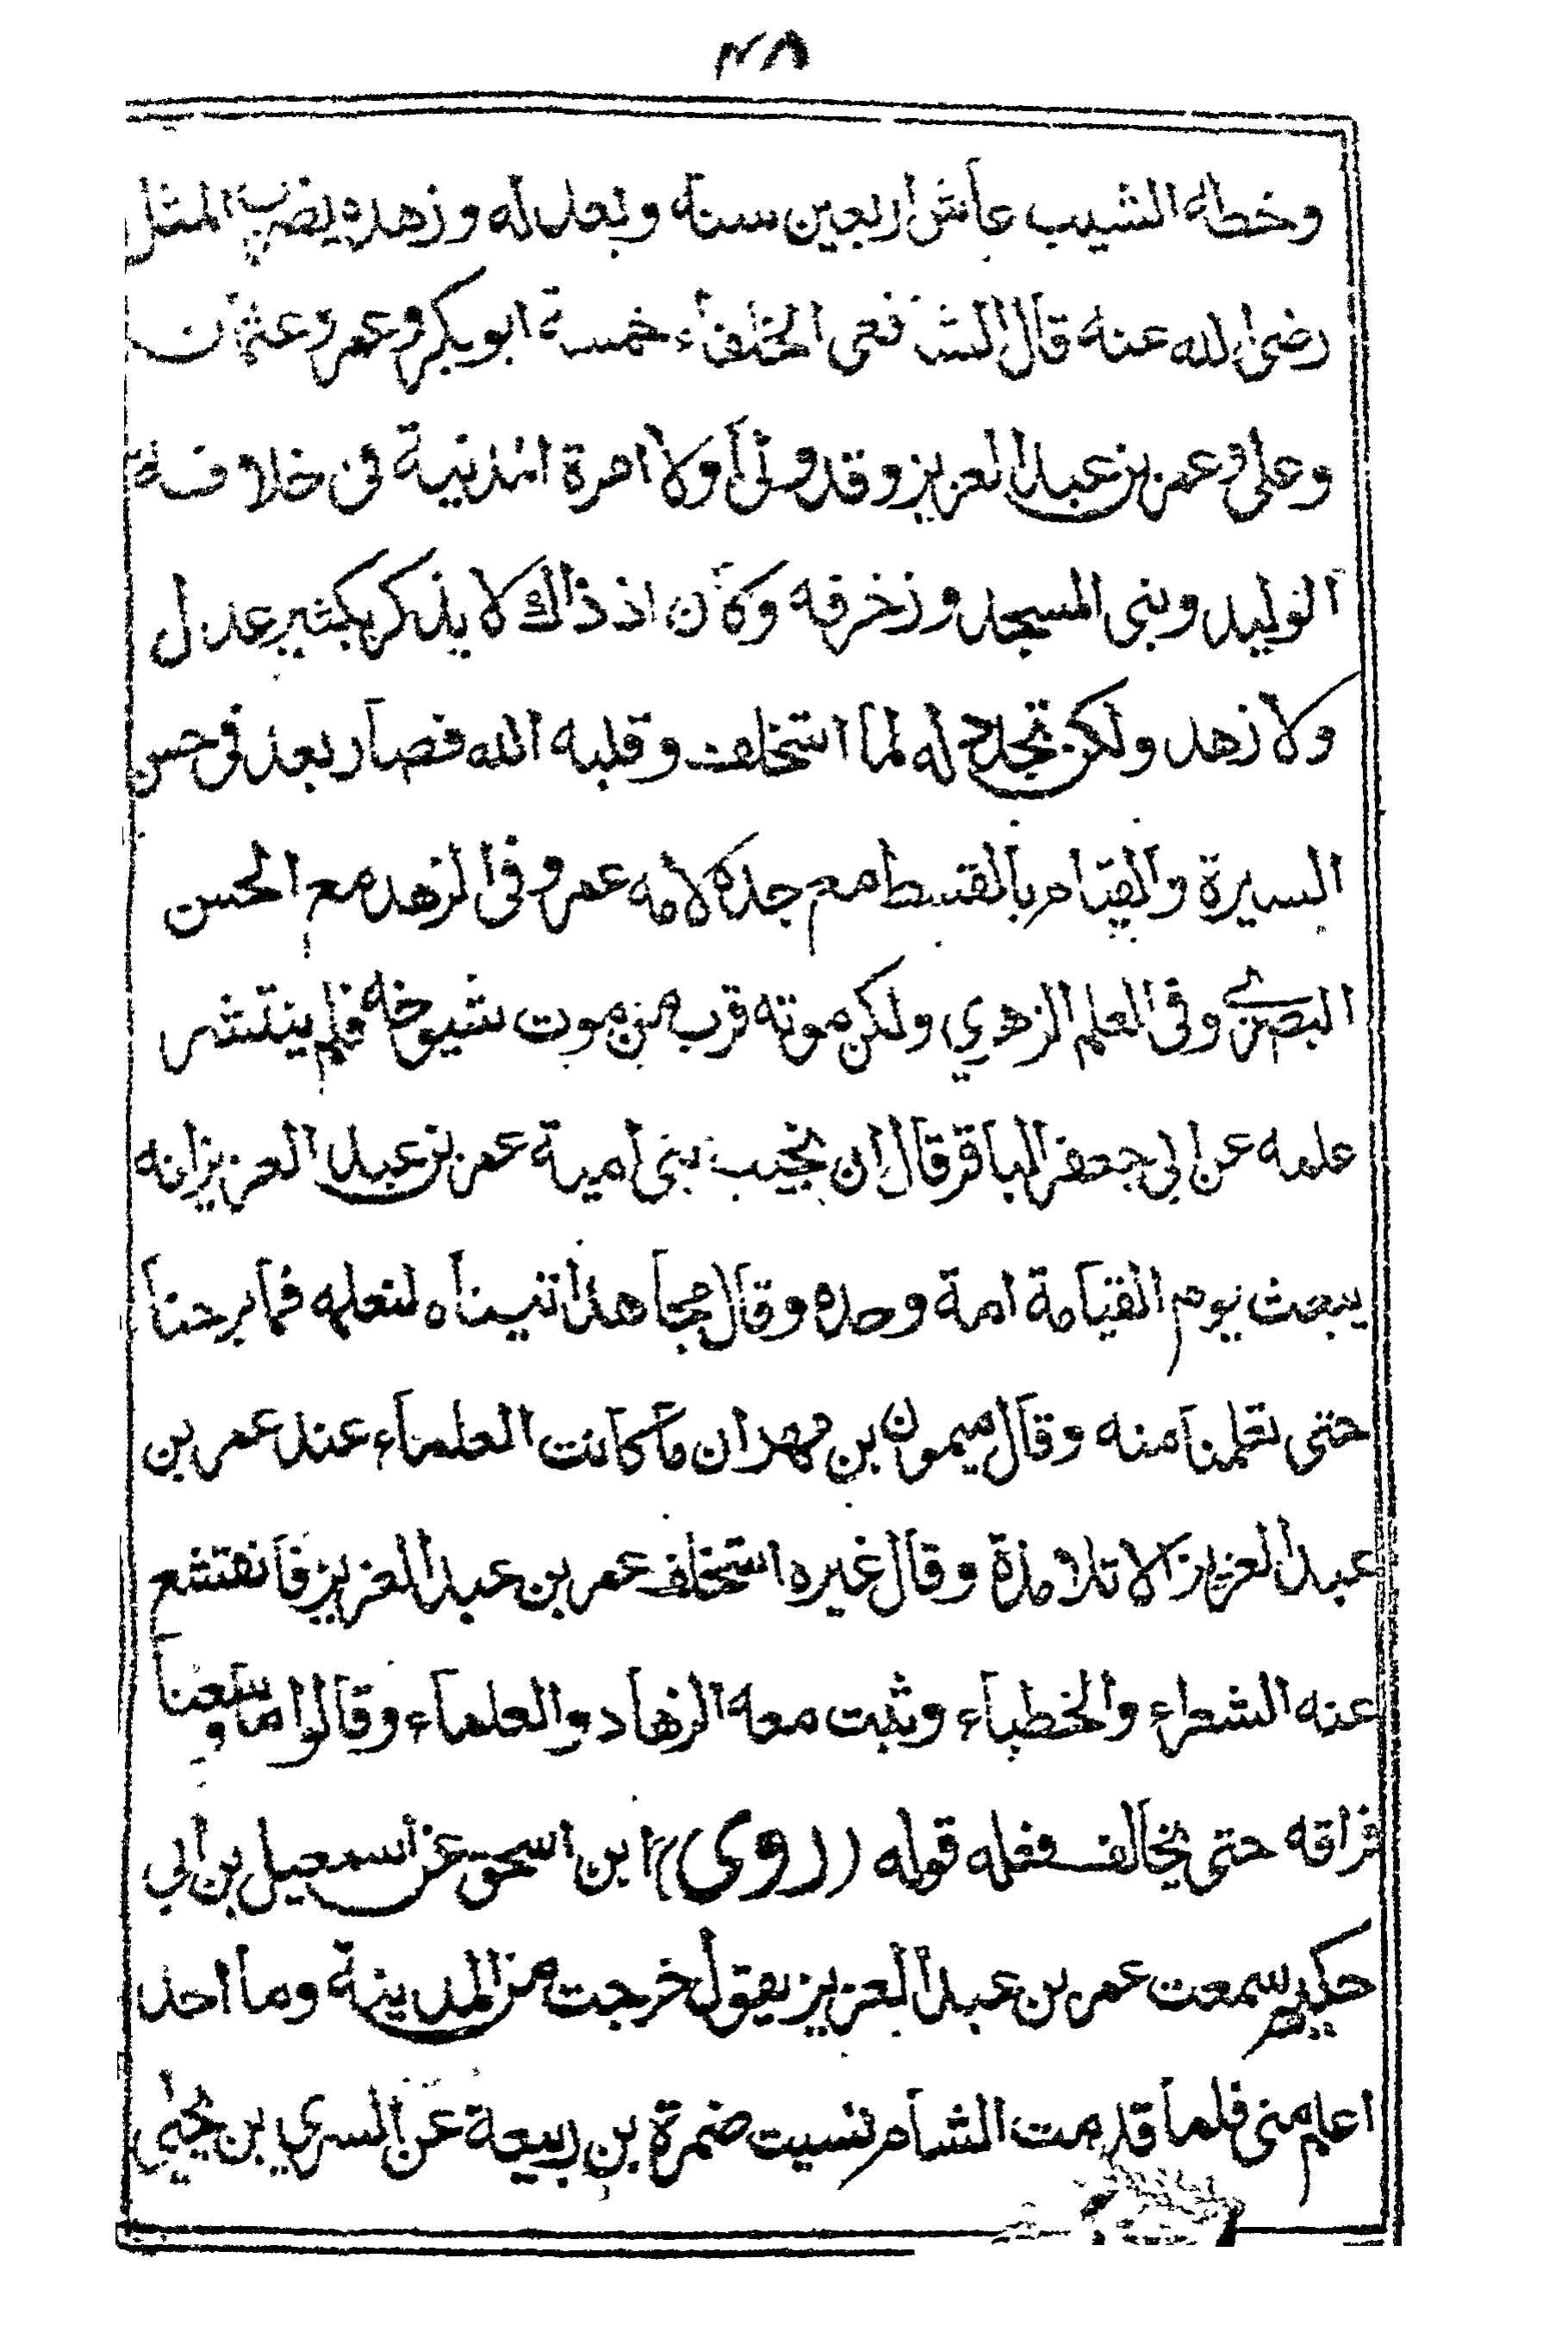 ٢٨
وخطه الشيب عاش اربعين سنة وبعدله وزهده يضرب المثل
رضى الله عنه قال الشافعى الخلفاء خمسة ابوبكر وعمر وعثمان
وعلى وعمر بن عبد العزيز وقد ولى أولا امرة المدنية فى خلافة
الوليد وبنى المسجد وزخرفه وكان اذ ذاك لا يذكر بكثير عدل
ولا زهد ولكن تجدد له لما استخلف وقلبه الله فصار بعد فى حسن
السيرة والقيام بالقسط مع جده لامه عمر وفى الزهد مع الحسن
البصرى وفى العلم الزهري ولكن موته قرب من موت شيوخه فلم ينتشر
علمه عن ابي جعفر الباقر قال إن نجيب بنى أمية عمر بن عبد العزيز انه
يبعث يوم القيامة امة وحده وقال مجاهد اتيناه لنعلمه فما برحنا
حتى تعلمنا منه وقال ميمون بن مهران ما كانت العلماء عند عمر بن
عبد العزيز الا تلامذة وقال غيره استخلف عمر بن عبد العزيز فانقشع
عنه الشعراء والخطباء وثبت معه الزهاد والعلماء وقالوا ما وسعنا
فراقه حتى يخالف فعله قوله (روى) ابن اسحق عن اسمعيل بن أبي
حكيم سمعت عمر بن عبد العزيز يقول خرجت من المدينة وما احد
اعلم منى فلما قدمت الشام نسيت ضمرة بن ربيعة عن السري بن يحيى